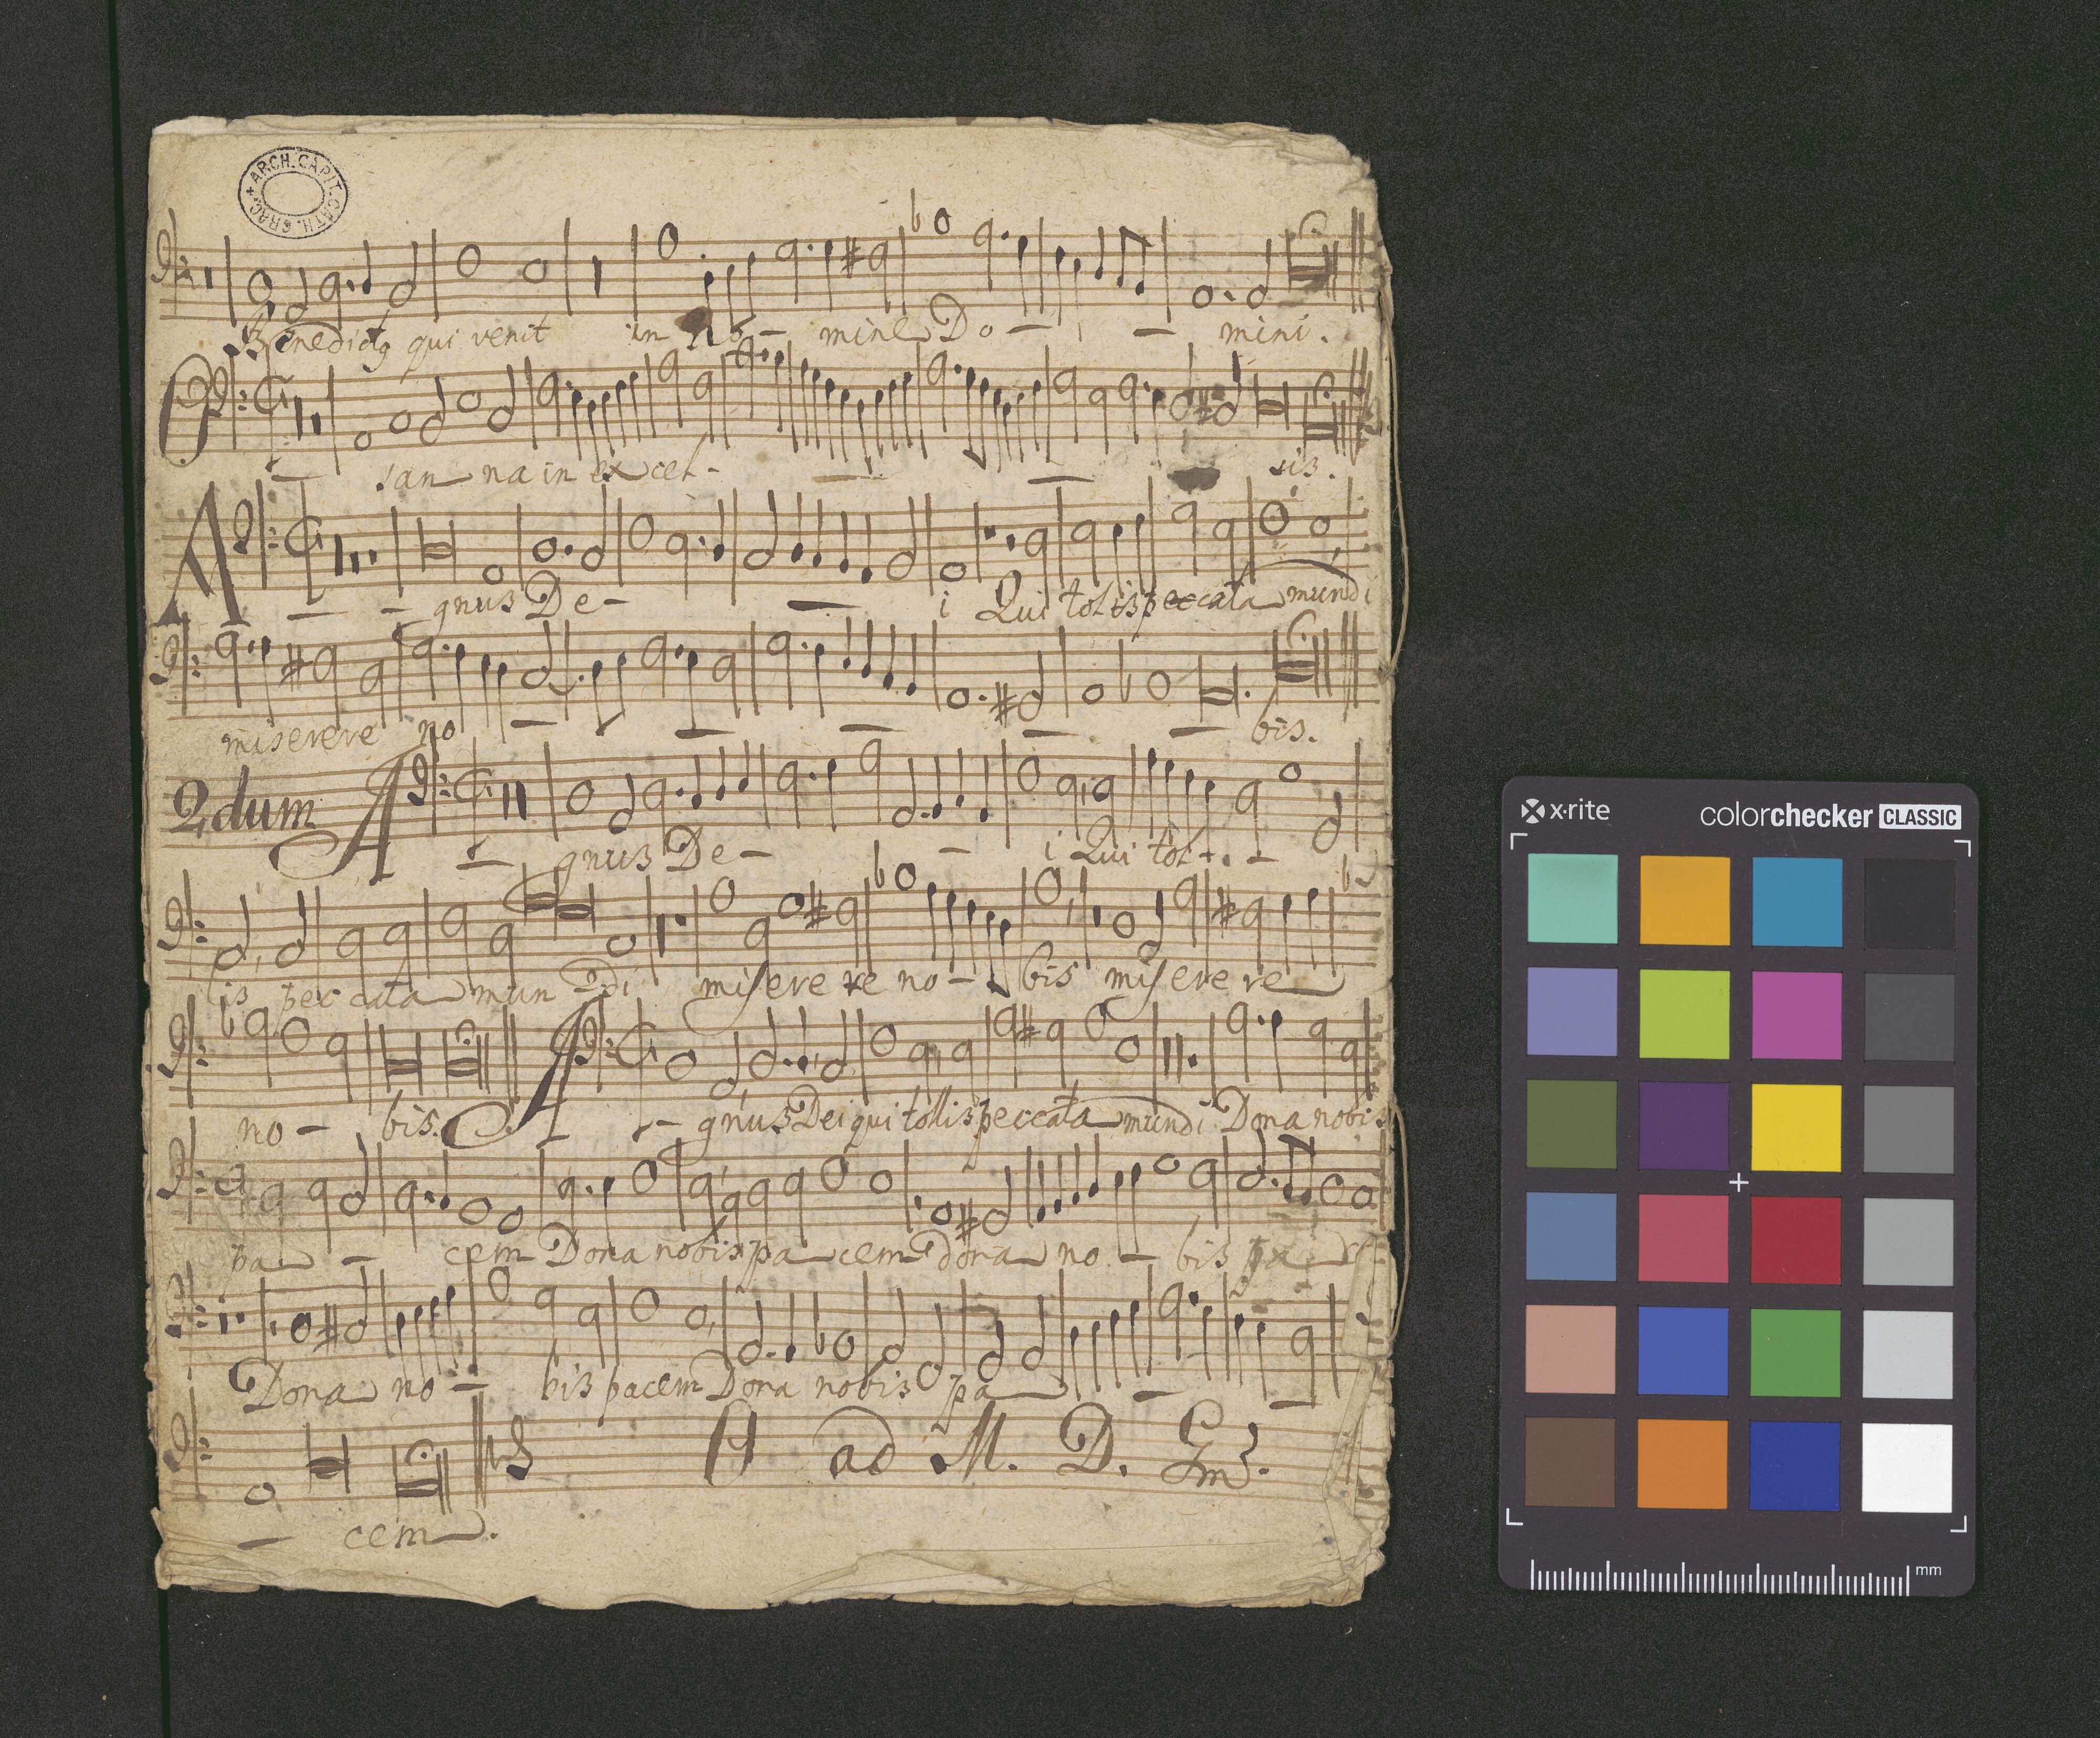 ARCH. CAPIT. CATH. CRAC.
Benedictq qui venit in No - mine Do - - mini.
O - san - na in excel - - - sis.
A - - gnus De - - i Qui tolis peccata mundi
miserere no - - - - - bis.
2dum A - gnus De - - i Qui tol - -
is peccata mun - di miserere no - bis miserere
no - bis. A - - gnus Dei qui tollis peccata mundi Dona nobis
pa - cem Dona nobis pa - cem dona no - bis pa
Dona no - bis pacem Dona nobis pa - -
ad M. D. G
- cem.
x-rite
colorchecker CLASSIC
mm